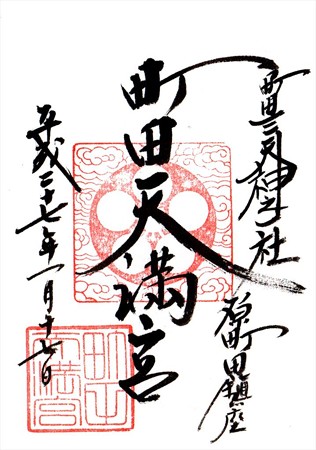 町田三天神社 原町田鎮座
町田天満宮
平成二十七年一月十七日
町田天満宮